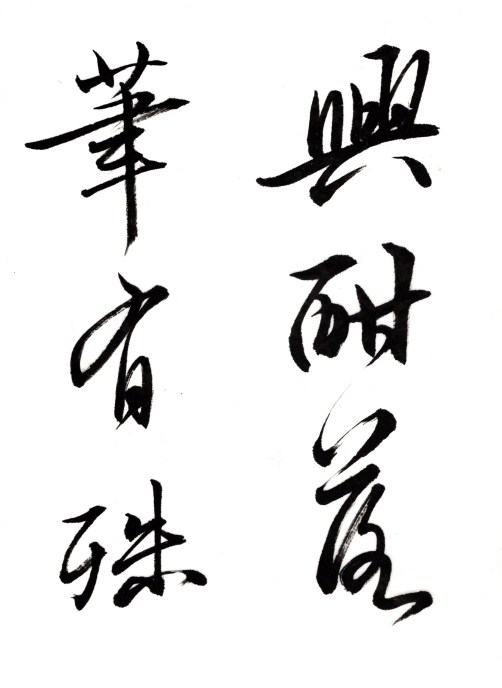 興酣落
筆有殊